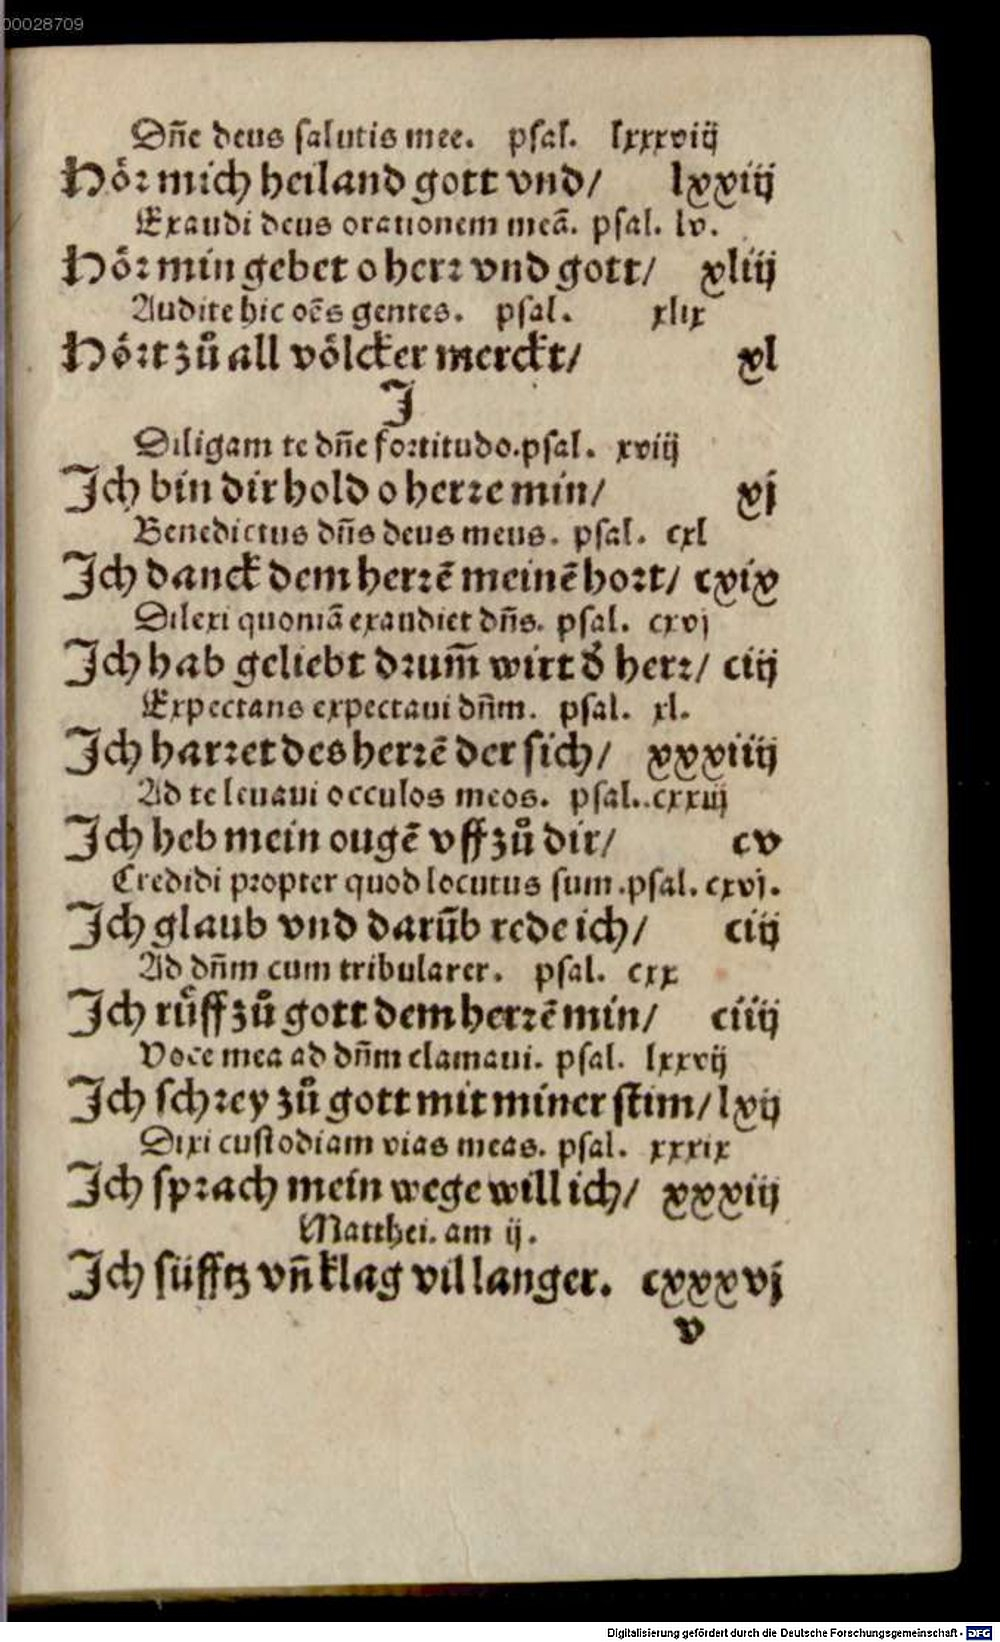 00028709
Dn̄e deus salutis mee. psal. lxxxviij
Hoͤr mich heiland gott vnd/ lxxiij
Exaudi deus orationem meā. psal. lv.
Hoͤr min gebet o herr vnd gott/ xliij
Audite hic oēs gentes. psal. xlix
Hoͤrt zuͦ all voͤlcker merckt/ xl
J
Diligam te dn̄e fortitudo. psal. xviij
Jch bin dir hold o herre min/ xj
Benedictus dn̄s deus meus. psal. cxl
Jch danck dem herrē meinē hort/ cxix
Dilexi quoniā exaudiet dn̄s. psal. cxvj
Jch hab geliebt drum̄ wirt d̕ herr/ ciij
Expectans expectaui dn̄m. psal. xl.
Jch harret des herrē der sich/ xxxiiij
Ad te leuaui occulos meos. psal. cxxiij
Jch heb mein ougē vff zuͦ dir/ cv
Credidi propter quod locutus sum. psal. cxvj.
Jch glaub vnd darūb rede ich/ ciij
Ad dn̄m cum tribularer. psal. cxx
Jch ruͤff zuͦ gott dem herrē min/ ciiij
Voce mea ad dn̄m clamaui. psal. lxxvij
Jch schrey zuͦ gott mit miner stim/ lxij
Dixi custodiam vias meas. psal. xxxix
Jch sprach mein wege will ich/ xxxiij
Matthei. am ij.
Jch süfftz vn̄ klag vil langer. cxxxvj
v
Digitalisierung gefördert durch die Deutsche Forschungsgemeinschaft - DFG